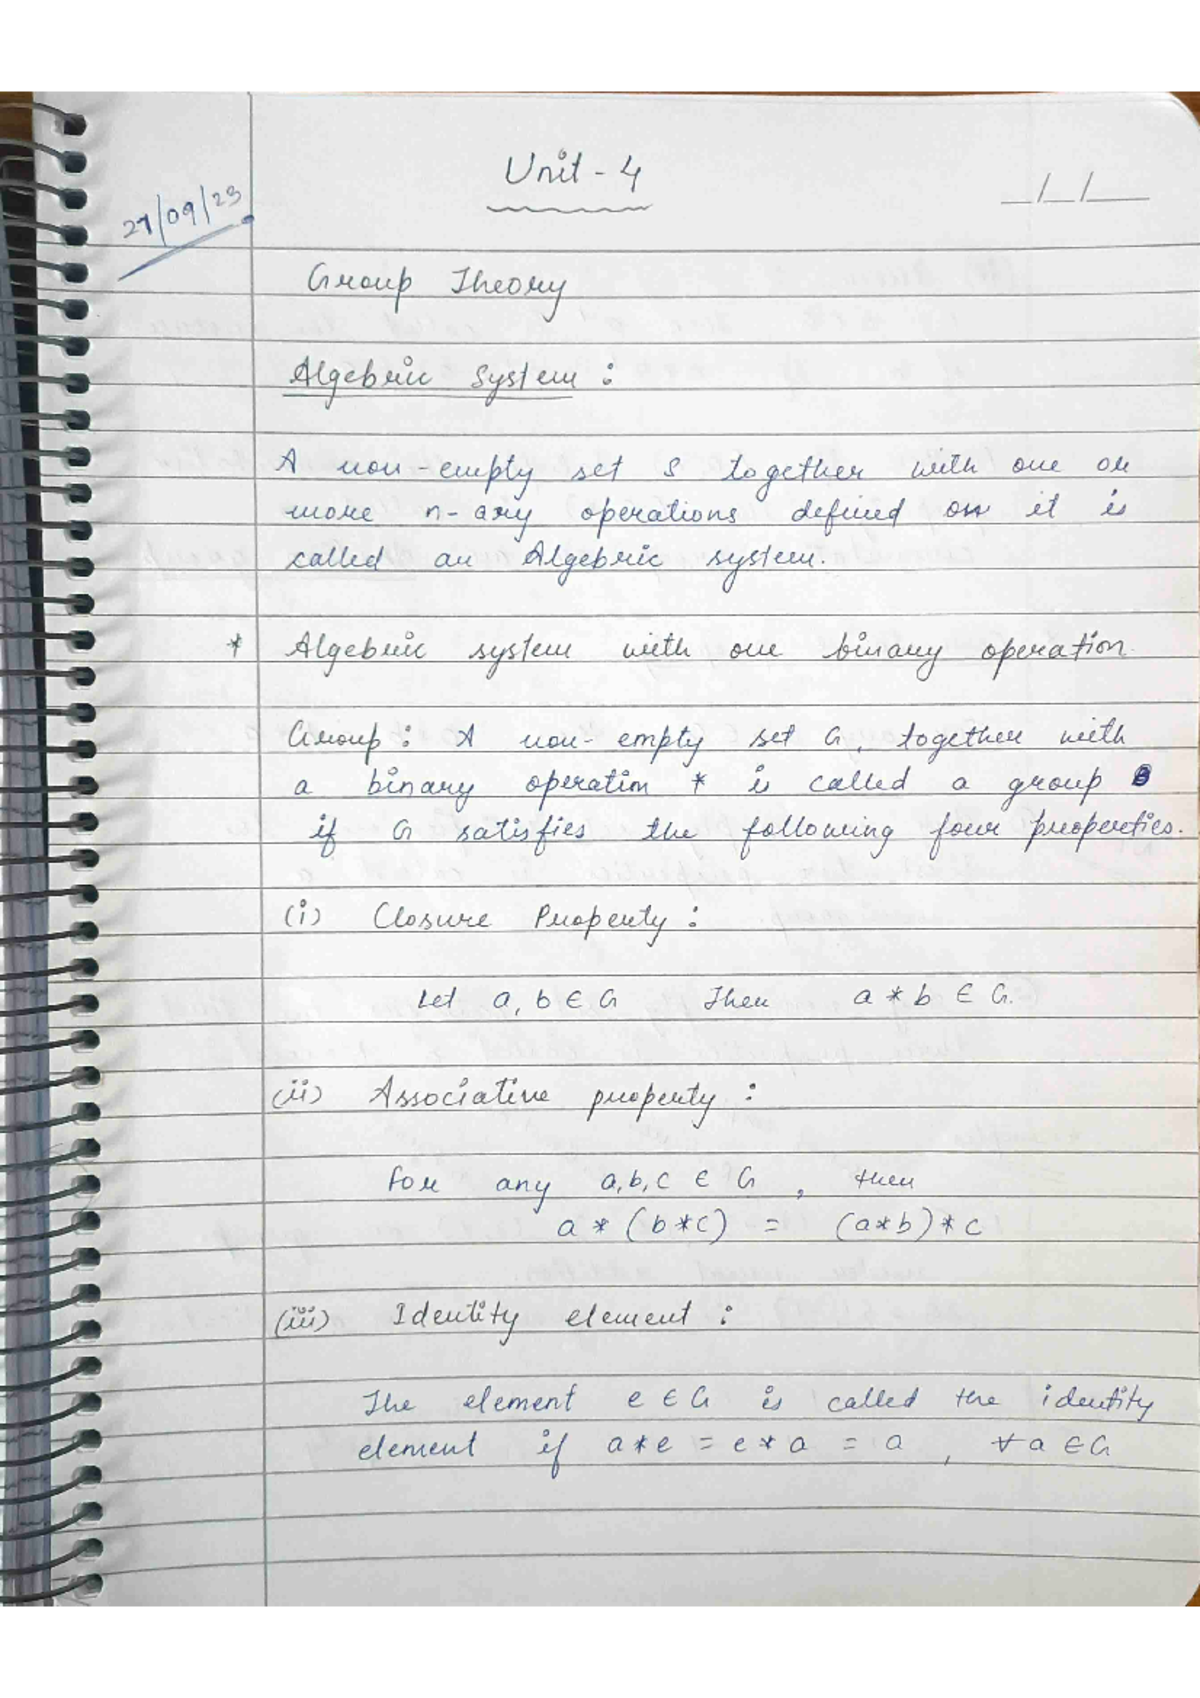 Unit - 4
27/09/23
_/_/__
Group Theory
Algebric System :
A non-empty set S together with one or
more n-ary operations defined on it is
called an Algebric system.
* Algebric system with one binary operation.
Group : A non-empty set G, together with
a binary operation * is called a group
if G satisfies the following four properties.
(i) Closure Property :
Let a, b ∈ G Then a * b ∈ G.
(ii) Associative property :
For any a, b, c ∈ G , then
a * (b * c) = (a * b) * c
(iii) Identity element :
The element e ∈ G is called the identity
element if a * e = e * a = a , ∀ a ∈ G